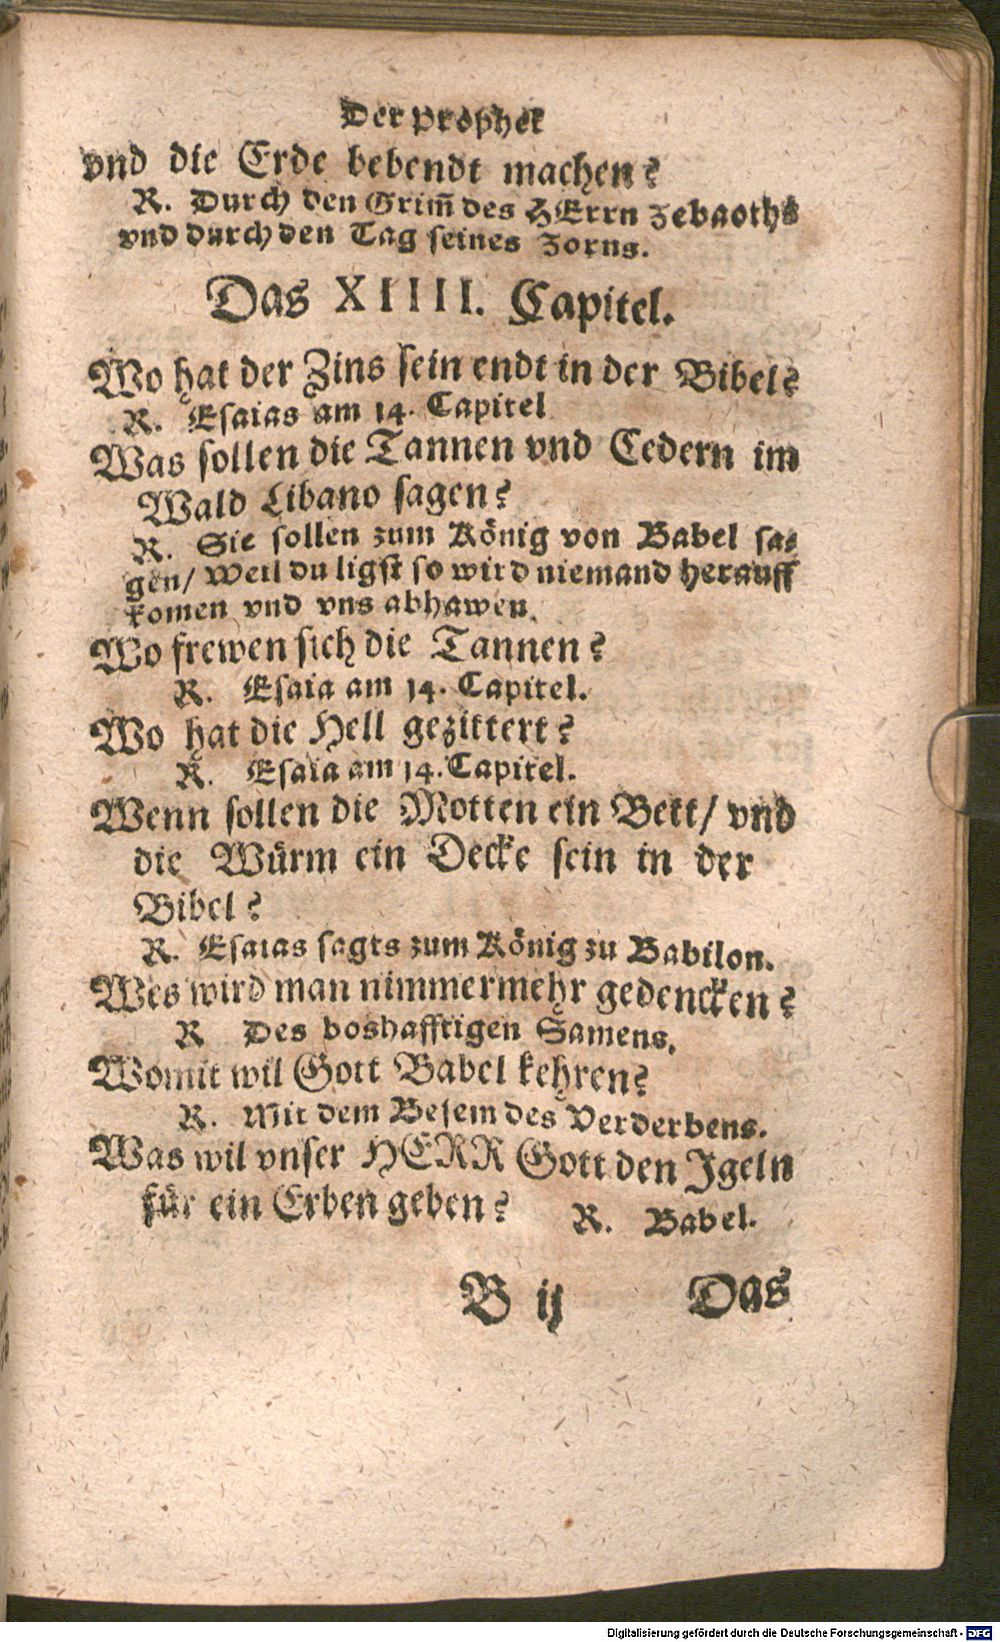 Der Prophet
vnd die Erde bebendt machen?
R. Durch den Grim̃ des HErrn Zebaoths
vnd durch den Tag seines Zorns.
Das XIIII. Capitel.
Wo hat der Zins sein endt in der Bibel?
R. Esaias am 14. Capitel
Was sollen die Tannen vnd Cedern im
Wald Libano sagen?
R. Sie sollen zum König von Babel sa-
gen/ Weil du ligst so wird niemand herauff
komen vnd vns abhawen.
Wo frewen sich die Tannen?
R. Esaia am 14. Capitel.
Wo hat die Hell gezittert?
R. Esaia am 14. Capitel.
Wenn sollen die Motten ein Bett/ vnd
die Würm ein Decke sein in der
Bibel?
R. Esaias sagts zum König zu Babilon.
Wes wird man nimmermehr gedencken?
R Des boshafftigen Samens.
Womit wil Gott Babel kehren?
R. Mit dem Besem des Verderbens.
Was wil vnser HERR Gott den Igeln
für ein Erben geben? R. Babel.
B ij Das
Digitalisierung gefördert durch die Deutsche Forschungsgemeinschaft - DFG